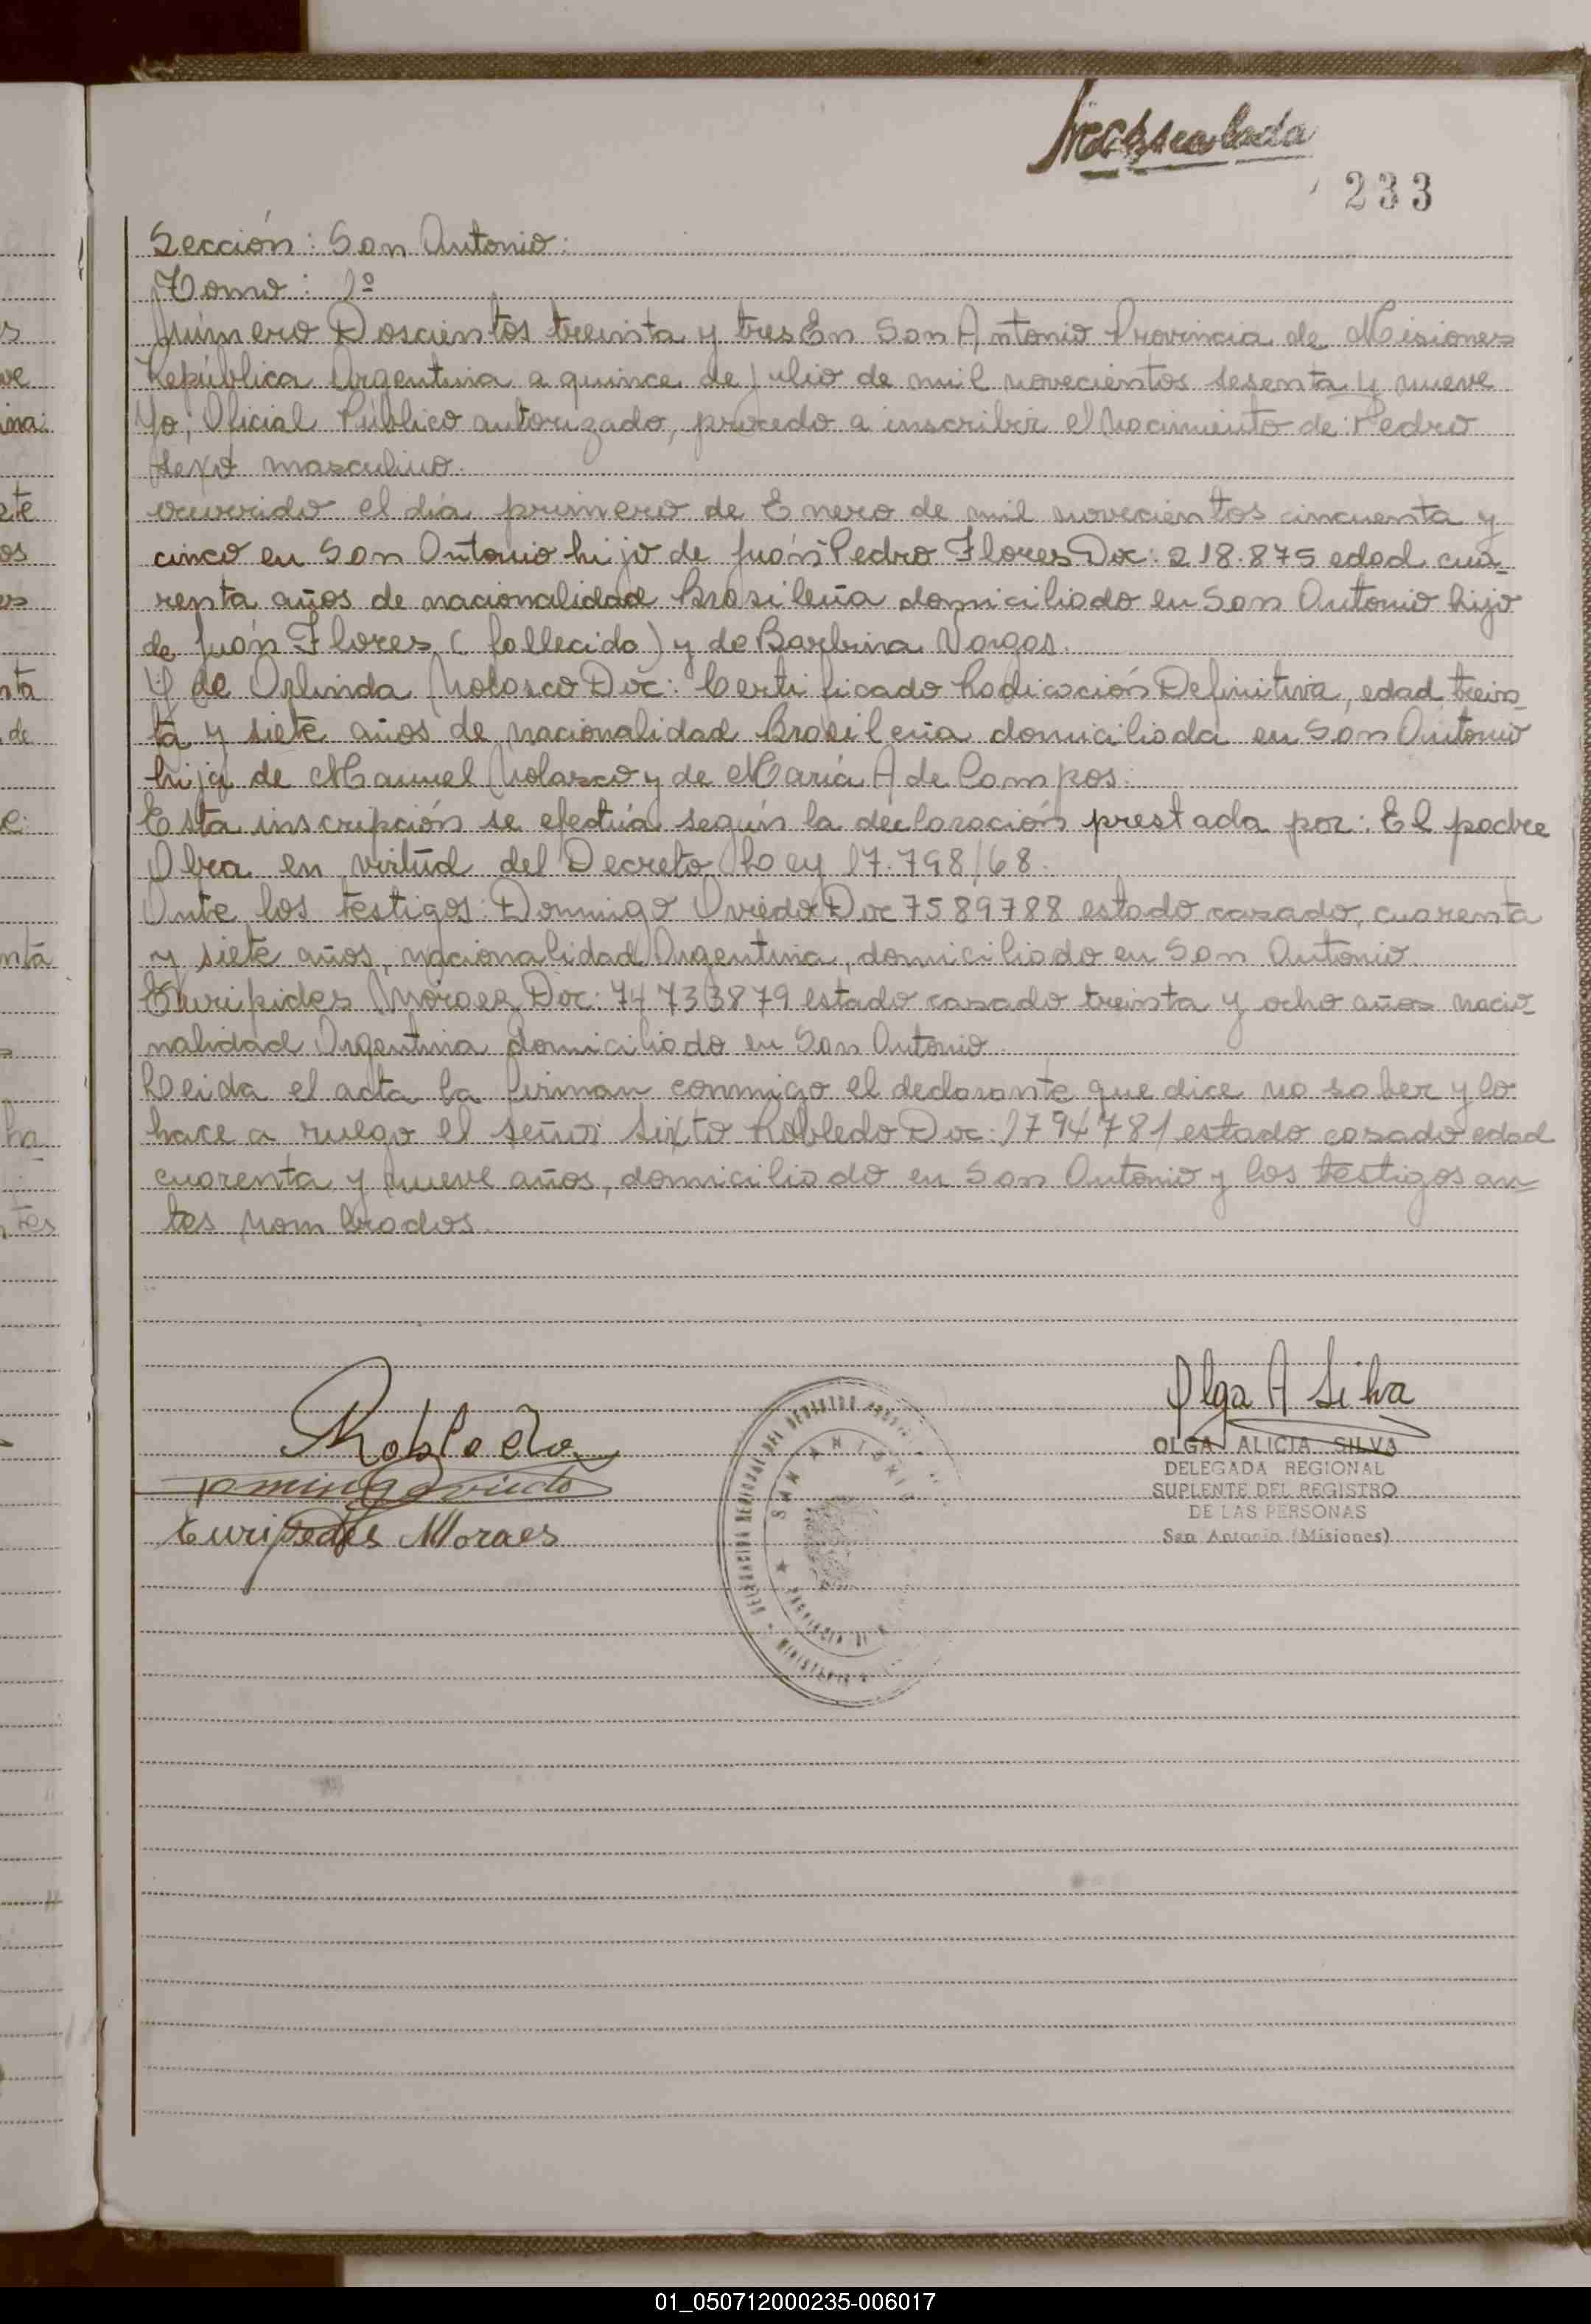 233
Sección: San Antonio:
Tomo: 1º
Número Doscientos treinta y tres En San Antonio Provincia de Misiones
República Argentina a quince de julio de mil novecientos sesenta y nueve
Yo, Oficial Público autorizado, procedo a inscribir el Nacimiento de: Pedro
sexo masculino.
ocurrido el día primero de Enero de mil novecientos cincuenta y
cinco en San Antonio hijo de Juan Pedro Flores Doc: 218.875 edad cua-
renta años de nacionalidad Brasileña domiciliado en San Antonio hijo
de Juán Flores (fallecido) y de Barbina Vargas.
Y de Orlinda Nolasco Doc: Certificado Radicación Definitiva, edad trein-
ta y siete años de nacionalidad Brasileña domiciliada en San Antonio
hija de Manuel Nolasco y de María A de Campos.
Esta inscripción se efectúa según la declaración prestada por: El padre
Obra en virtud del Decreto Ley 17.798/68.
Ante los testigos: Domingo Oviedo Doc 7589788 estado casado, cuarenta
y siete años, nacionalidad Argentina, domiciliado en San Antonio.
Euripides Moraes Doc: 74733879 estado casado treinta y ocho años nacio-
nalidad Argentina domiciliado en San Antonio.
Leida el acta la firman conmigo el declarante que dice no saber y lo
hace a ruego el señor Sixto Robledo Doc: 1794781 estado casado edad
cuarenta y nueve años, domiciliado en San Antonio y los testigos an=
tes nombrados.
Olga A Silva
Robledo
OLGA ALICIA SILVA
DELEGADA REGIONAL
Domingo Oviedo
SUPLENTE DEL REGISTRO
DE LAS PERSONAS
Euripedes Moraes
San Antonio (Misiones)
SAN ANTONIO
01_050712000235-006017